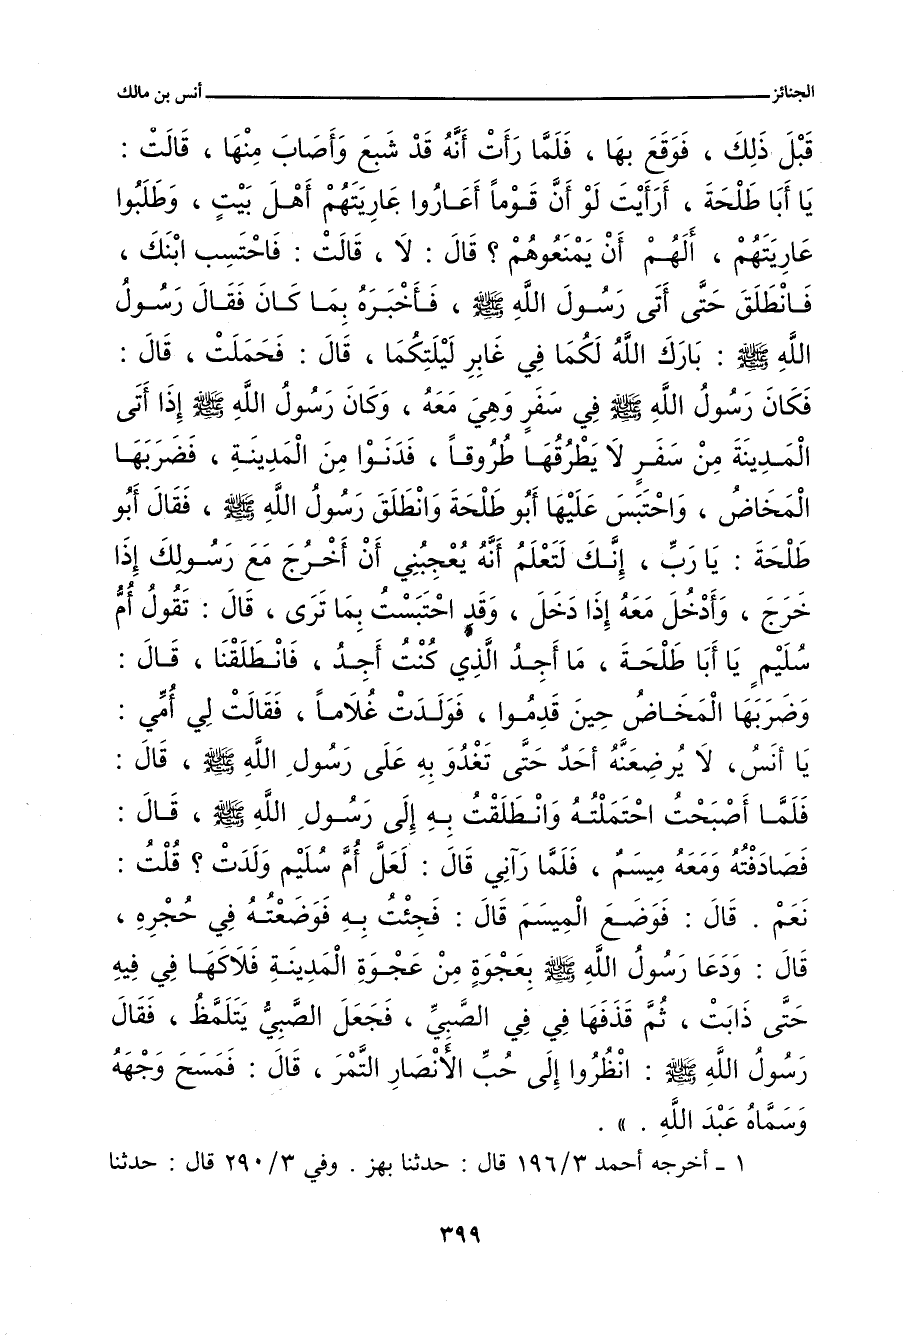 الجنائز ــــــــــــــــــــ أنس بن مالك
قَبْلَ ذَلِكَ ، فَوَقَعَ بِهَا ، فَلَمَّا رَأَتْ أَنَّهُ قَدْ شَبِعَ وَأَصَابَ مِنْهَا ، قَالَتْ :
يَا أَبَا طَلْحَةَ ، أَرَأَيْتَ لَوْ أَنَّ قَوْماً أَعَارُوا عَارِيَتَهُمْ أَهْلَ بَيْتٍ ، وَطَلَبُوا
عَارِيَتَهُمْ ، أَلَهُمْ أَنْ يَمْنَعُوهُمْ ؟ قَالَ : لَا ، قَالَتْ : فَاحْتَسِبِ ابْنَكَ ،
فَانْطَلَقَ حَتَّى أَتَى رَسُولَ اللَّهِ ﷺ ، فَأَخْبَرَهُ بِمَا كَانَ فَقَالَ رَسُولُ
اللَّهِ ﷺ : بَارَكَ اللَّهُ لَكُمَا فِي غَابِرِ لَيْلَتِكُمَا ، قَالَ : فَحَمَلَتْ ، قَالَ :
فَكَانَ رَسُولُ اللَّهِ ﷺ فِي سَفَرٍ وَهِيَ مَعَهُ ، وَكَانَ رَسُولُ اللَّهِ ﷺ إِذَا أَتَى
الْمَدِينَةَ مِنْ سَفَرٍ لَا يَطْرُقُهَا طُرُوقاً ، فَدَنَوْا مِنَ الْمَدِينَةِ ، فَضَرَبَهَا
الْمَخَاضُ ، وَاحْتَبَسَ عَلَيْهَا أَبُو طَلْحَةَ وَانْطَلَقَ رَسُولُ اللَّهِ ﷺ ، فَقَالَ أَبُو
طَلْحَةَ : يَا رَبِّ ، إِنَّكَ لَتَعْلَمُ أَنَّهُ يُعْجِبُنِي أَنْ أَخْرُجَ مَعَ رَسُولِكَ إِذَا
خَرَجَ ، وَأَدْخُلَ مَعَهُ إِذَا دَخَلَ ، وَقَدِ احْتَبَسْتُ بِمَا تَرَى ، قَالَ : تَقُولُ أُمُّ
سُلَيْمٍ يَا أَبَا طَلْحَةَ ، مَا أَجِدُ الَّذِي كُنْتُ أَجِدُ ، فَانْطَلَقْنَا ، قَالَ :
وَضَرَبَهَا الْمَخَاضُ حِينَ قَدِمُوا ، فَوَلَدَتْ غُلَاماً ، فَقَالَتْ لِي أُمِّي :
يَا أَنَسُ، لَا يُرضِعَنَّهُ أَحَدٌ حَتَّى تَغْدُوَ بِهِ عَلَى رَسُولِ اللَّهِ ﷺ ، قَالَ :
فَلَمَّا أَصْبَحْتُ احْتَمَلْتُهُ وَانْطَلَقْتُ بِهِ إِلَى رَسُولِ اللَّهِ ﷺ ، قَالَ :
فَصَادَفْتُهُ وَمَعَهُ مِيسَمٌ ، فَلَمَّا رَآنِي قَالَ : لَعَلَّ أُمَّ سُلَيْمٍ وَلَدَتْ ؟ قُلْتُ :
نَعَمْ . قَالَ : فَوَضَعَ الْمِيسَمَ قَالَ : فَجِئْتُ بِهِ فَوَضَعْتُهُ فِي حُجْرِهِ ،
قَالَ : وَدَعَا رَسُولُ اللَّهِ ﷺ بِعَجْوَةٍ مِنْ عَجْوَةِ الْمَدِينَةِ فَلَاكَهَا فِي فِيهِ
حَتَّى ذَابَتْ ، ثُمَّ قَذَفَهَا فِي فِي الصَّبِيِّ ، فَجَعَلَ الصَّبِيُّ يَتَلَمَّظُ ، فَقَالَ
رَسُولُ اللَّهِ ﷺ : انْظُرُوا إِلَى حُبِّ الأَنْصَارِ التَّمْرَ ، قَالَ : فَمَسَحَ وَجْهَهُ
وَسَمَّاهُ عَبْدَ اللَّهِ . » .
١ ـ أخرجه أحمد ١٩٦/٣ قال : حدثنا بهز . وفي ٢٩٠/٣ قال : حدثنا
٣٩٩